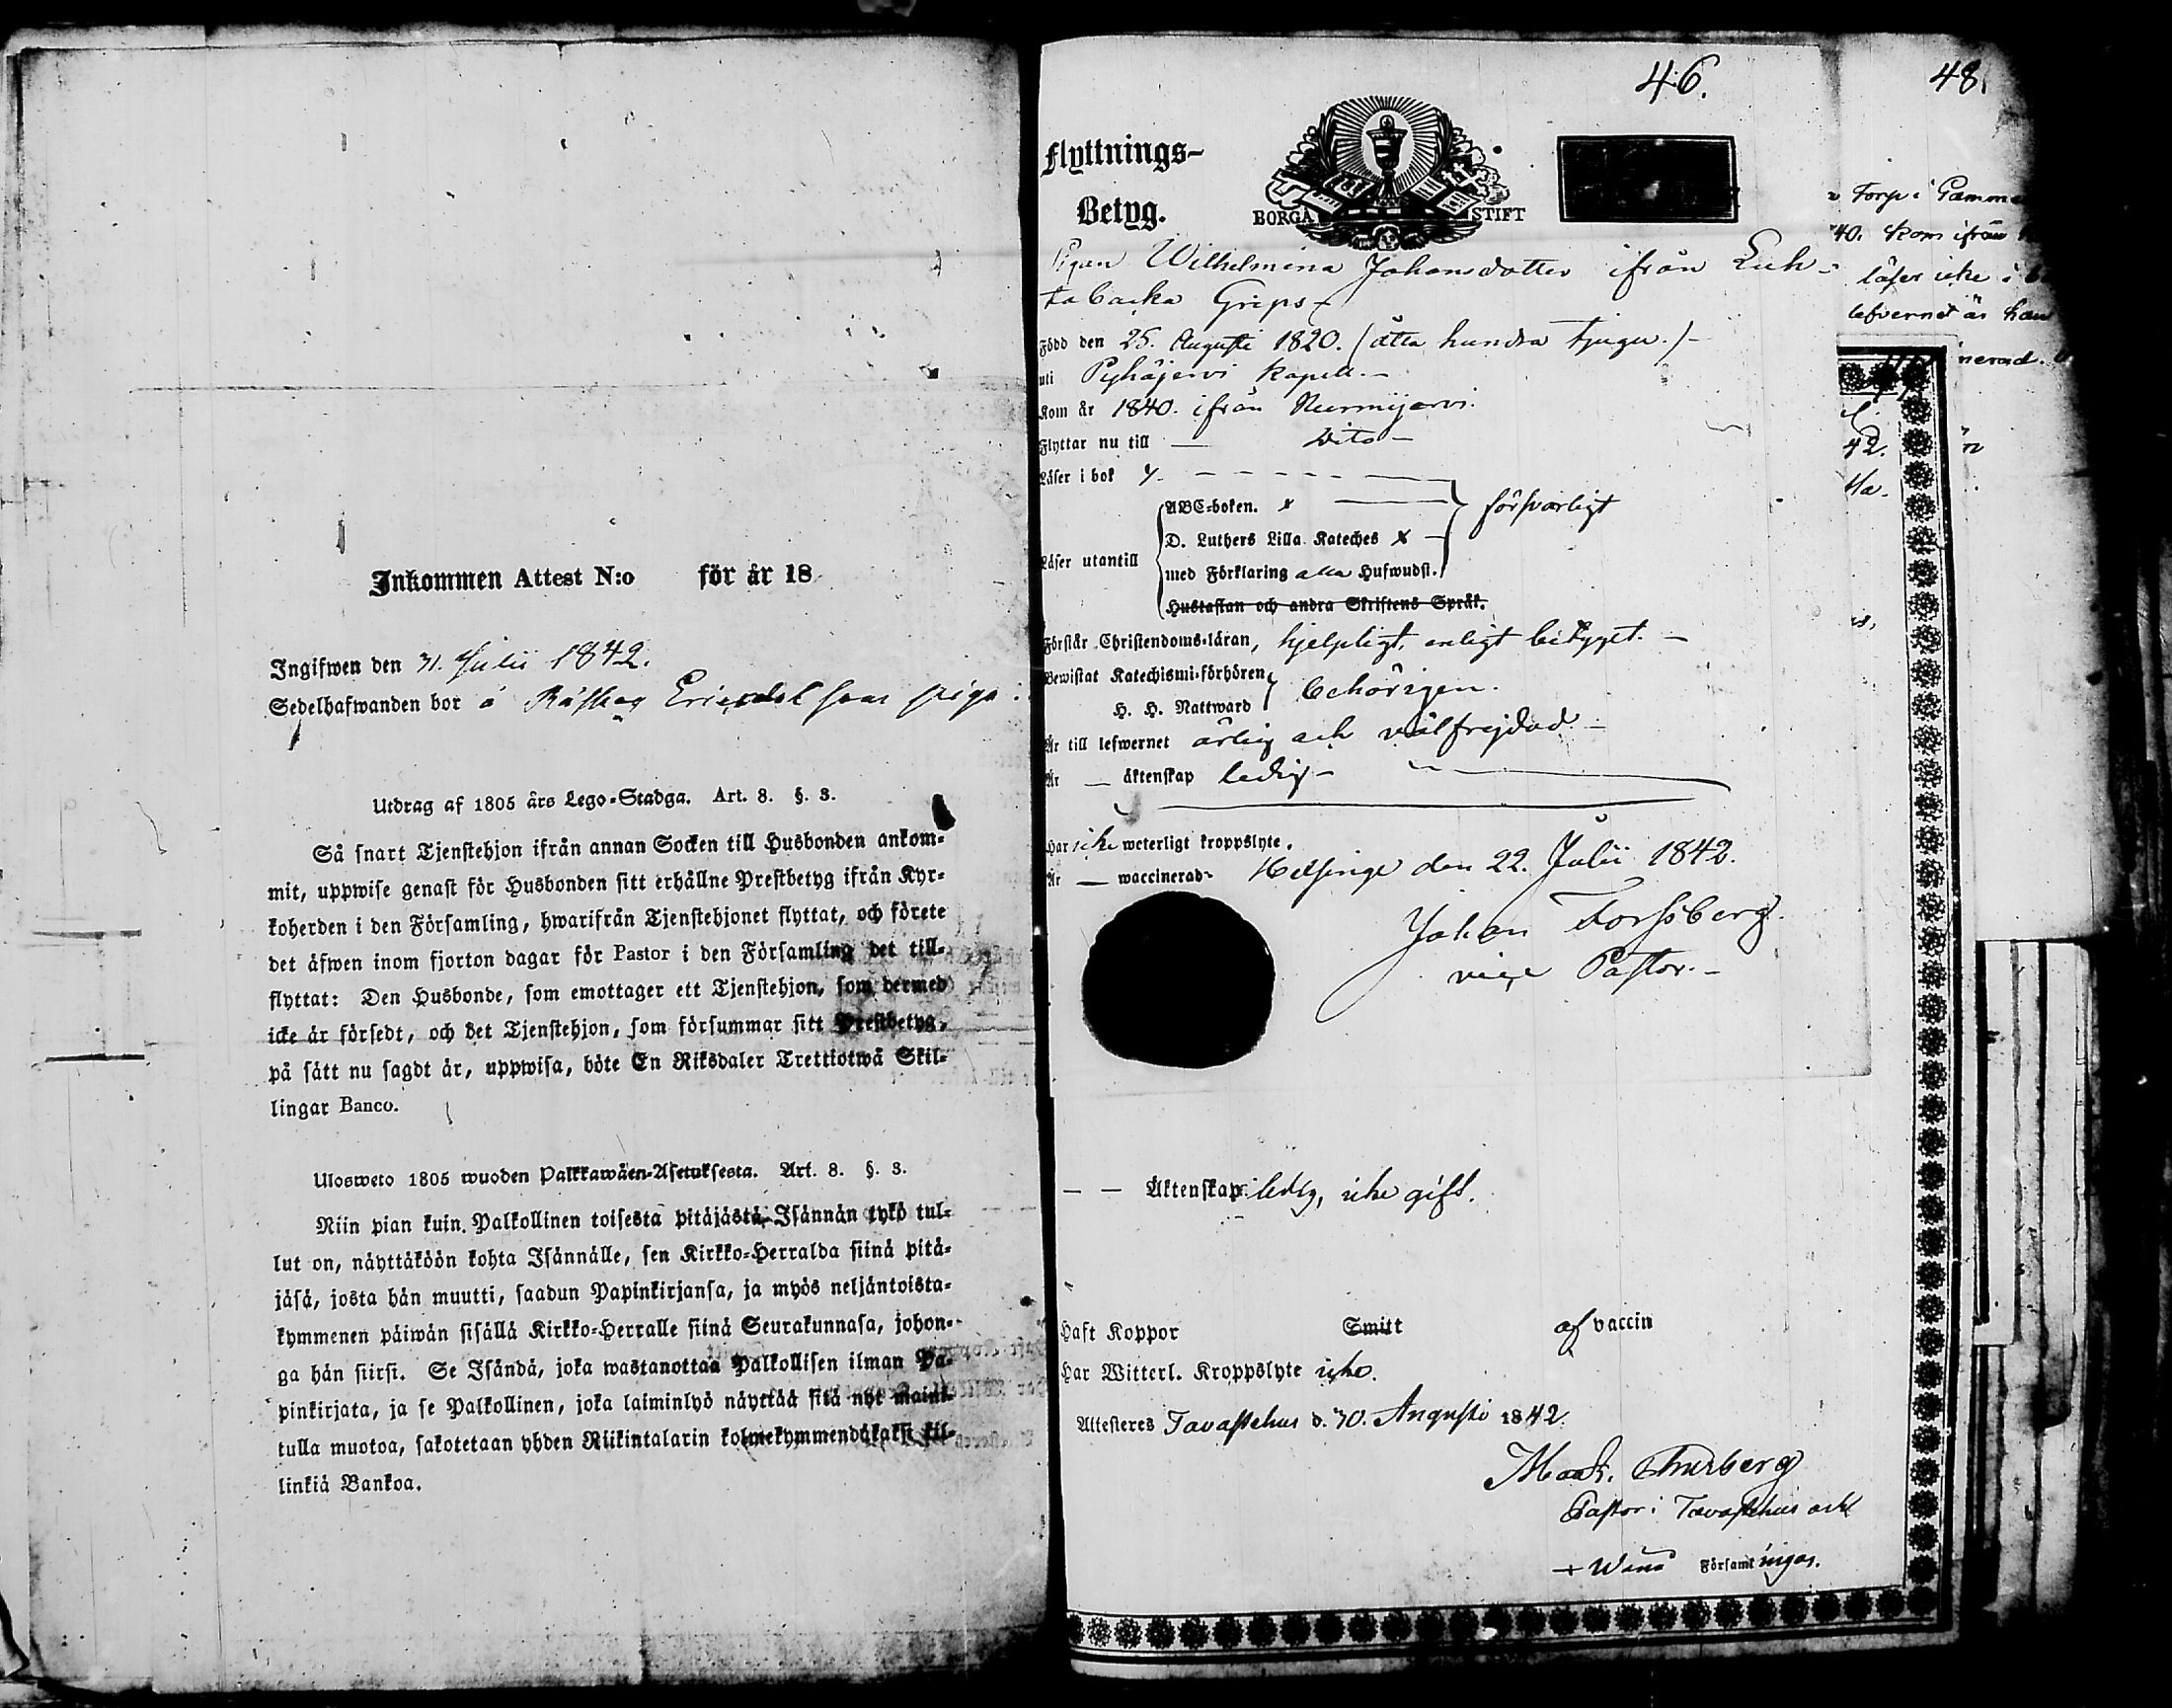 Inkommen Attest N:o för år 18
Ingifwen den 31. Julii 1842.
Sedelhafwanden bor å Råskog piga
Utdrag af 1805 års Lego-Stadga. Art. 8. §. 3.
Så snart Tjenstehjon ifrån annan Socken till Husbonden ankom-
mit, uppwise genast för Husbonden sitt erhållne Prestbetyg ifrån Kyr-
koherden i den Församling, hwarifrån Tjenstehjonet flyttat, och förete
det äfwen inom fjorton dagar för Pastor i den Församling det till-
flyttat: Den Husbonde, som emottager ett Tjenstehjon, som dermed
icke är försedt, och det Tjenstehjon, som försummar sitt Prestbetyg,
på sätt nu sagdt är, uppwisa, böte En Riksdaler Trettiotwå Skil-
lingar Banco.
Ulosweto 1805 wuoden Palkkawäen-Asetuksesta. Art. 8. §. 3.
Niin pian kuin Palkollinen toisesta pitäjästä Isännän tykö tul-
lut on, näyttäköön kohta Isännälle, sen Kirkko-Herralda siinä pitä-
jäsä, josta hän muutti, saadun Papinkirjansa, ja myös neljäntoista-
kymmenen päiwän sisällä Kirkko-Herralle siinä Seurakunnasa, johon-
ga hän siirsi. Se Isändä, joka wastanottaa Palkollisen ilman Pa-
pinkirjata, ja se Palkollinen, joka laiminlyö näyttää sitä nyt mainit-
tulla muotoa, sakotetaan yhden Riikintalarin kolmekymmendäkaksi kil-
linkiä Bankoa.
46.
Flyttnings-
Betyg.
BORGÅ STIFT
Pigan Wilhelmina Johansdotter ifrån Luh-
tabacka Grips
Född den 25. Augusti 1820. (åtta hundra tjugu.)
uti Pyhäjerwi Kapell.
Kom år 1840. ifrån Nurmijerwi.
Flyttar nu till — Dito
Läser i bok
ABC-boken. försvarligt
D. Luthers Lilla Kateches
Läser utantill
med Förklaring alla Hufwudst.
Hustaflan och andra Skriftens Språk.
Förstår Christendoms-läran, hjelpligt, enligt betyget.
Bewistat Katechismi-förhören behörigen.
H. H. Nattward
Är till lefwernet ärlig och välfrejdad
Är — äktenskap ledig
Har icke weterligt kroppslyte.
Är — waccinerad Helsinge den 22. Julii 1842.
Johan Forssberg.
vice Pastor.
Äktenskap: ledig, icke gift.
Haft Koppor Smitt af vaccin
Har Witterl. Kroppslyte icke.
Attesteres Tavastehus d. 30. Augusti 1842.
Thurberg
Pastor i Tavastehus och
Wånå Församlingar.
48.
Torp i
40. Kom ifrån
läser icke i
lefvernet är
nerad.
42.